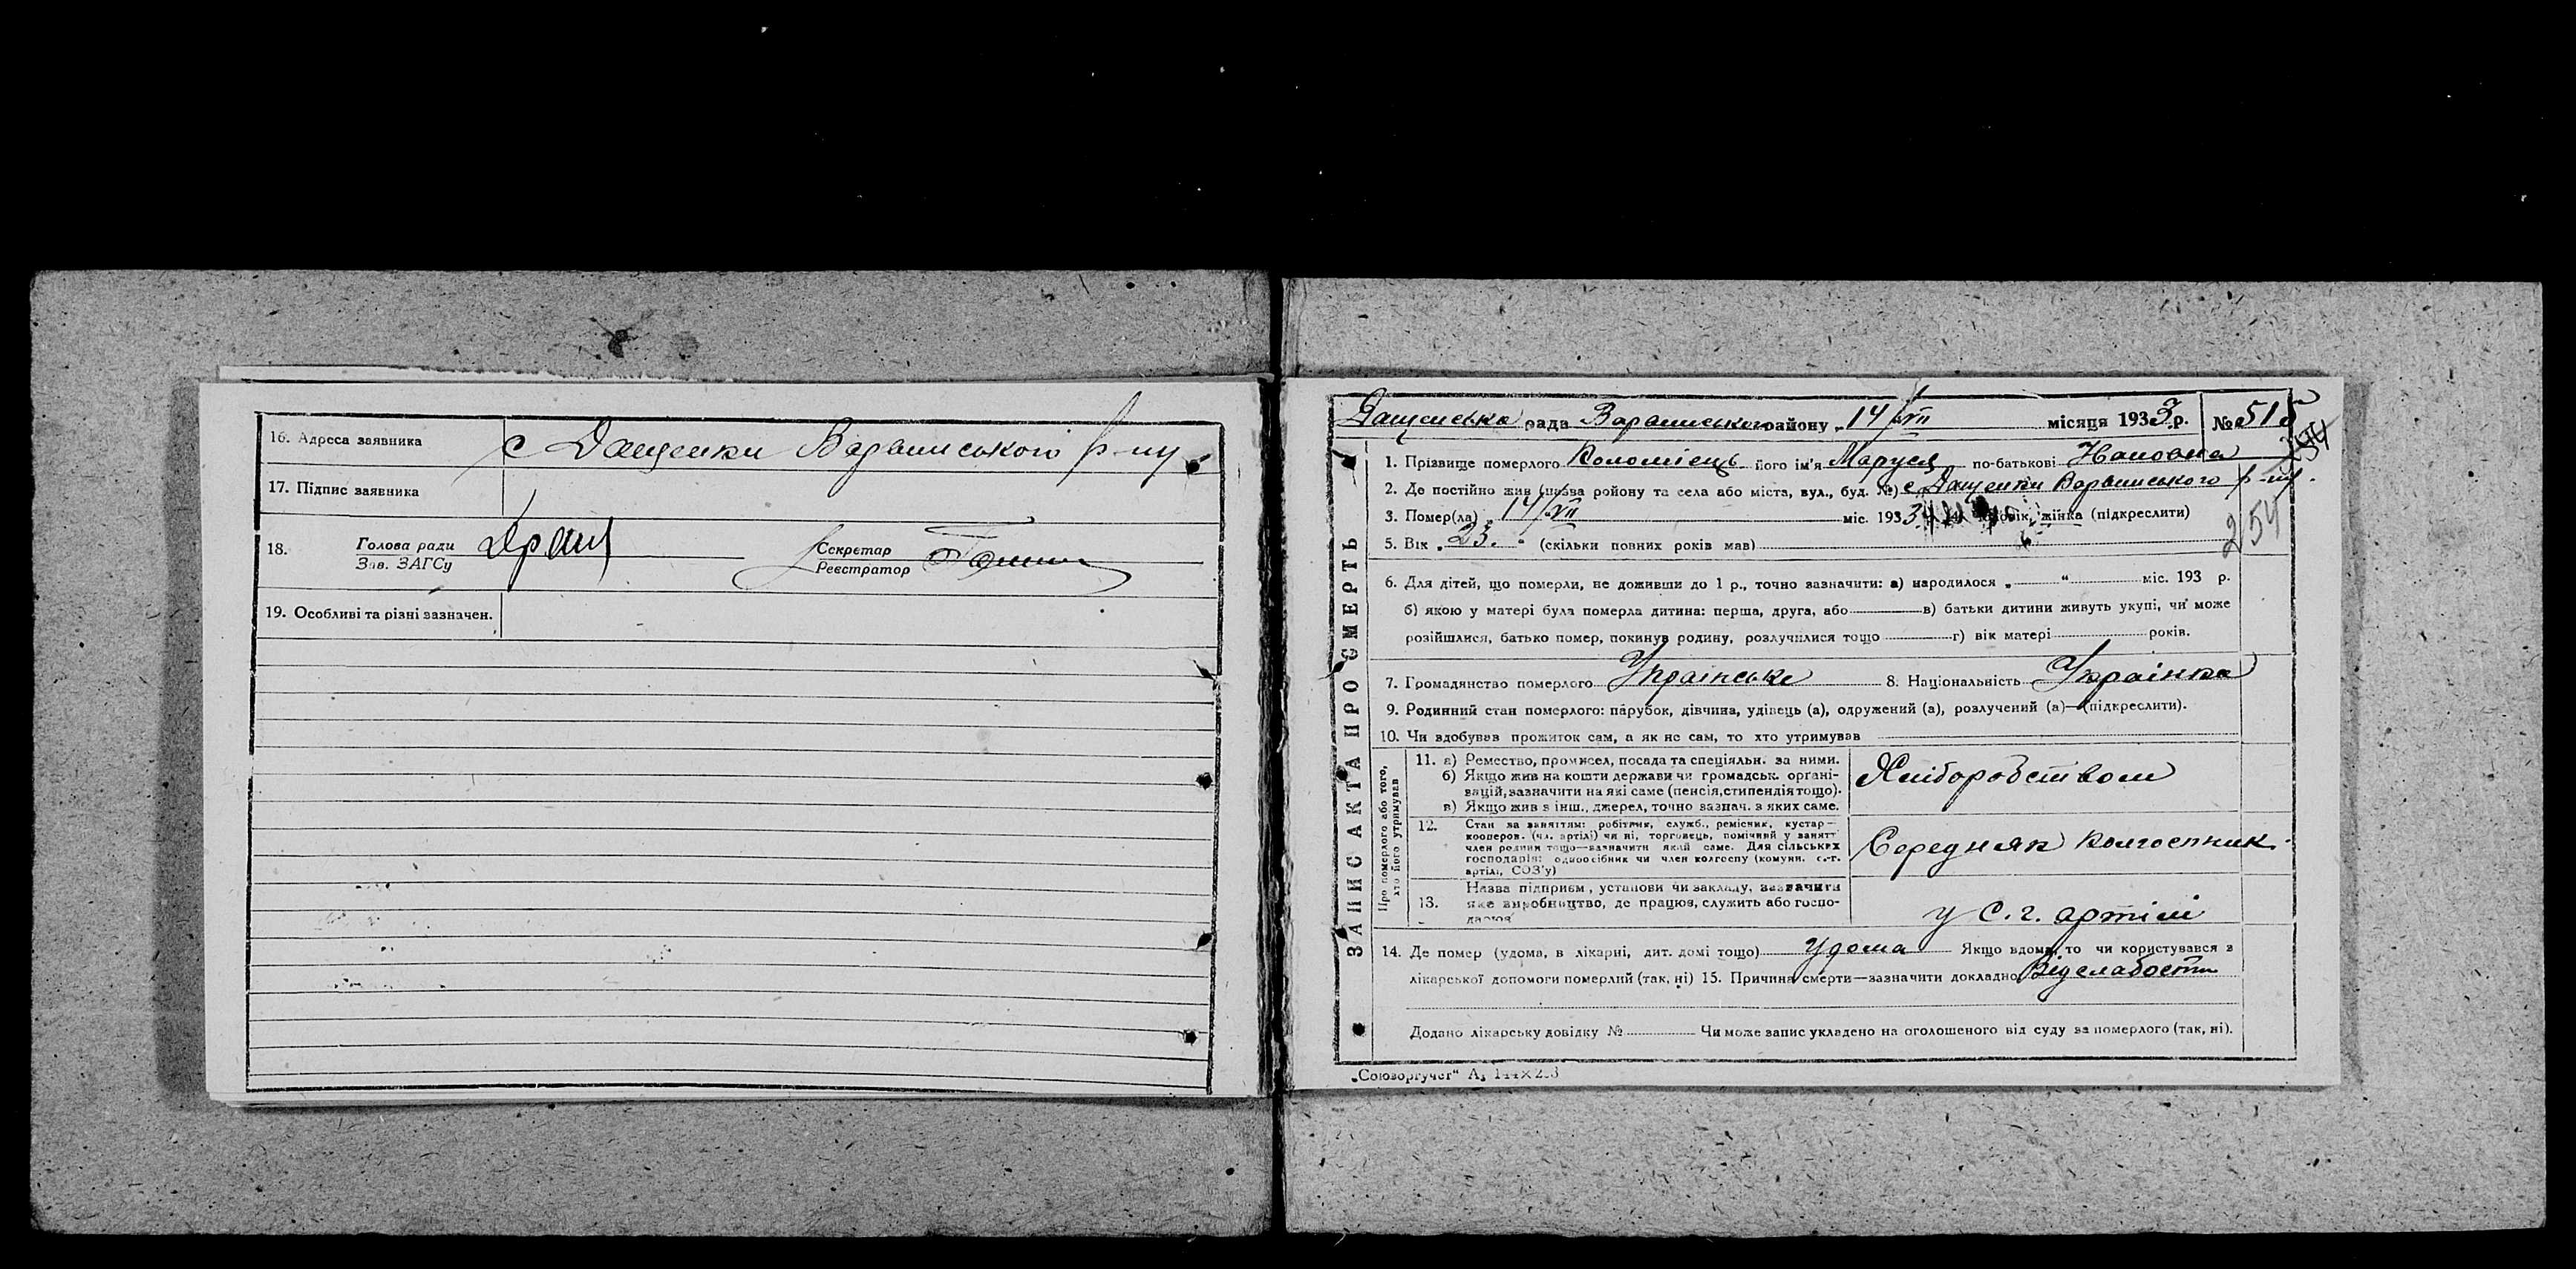 16. Адреса заявника с Дащенки Варвинського р-ну
17. Підпис заявника
18. Голова ради Зав. ЗАГСу Секретар Реєстратор
19. Особливі та різні зазначен.
Дащенська рада Варвинського району „14/VII місяця 1933 р. № 515
ЗАПИС АКТА ПРО СМЕРТЬ
1. Прізвище померлого Коломієць його ім'я Маруся по-батькові
2. Де постійно жив (назва ройону та села або міста, вул., буд. №) с Дащенки Варвинського р-ну.
3. Помер(ла) „14/VII міс. 1933 жінка (підкреслити)
254
5. Вік „23." (скільки повних років мав)
6. Для дітей, що померли, не доживши до 1 р., точно зазначити: а) народилося „ “ міс. 193 р.
б) якою у матері була померла дитина: перша, друга, або в) батьки дитини живуть укупі, чи може
розійшлися, батько помер, покинув родину, розлучилися тощо г) вік матері років.
7. Громадянство померлого Українське 8. Національність Українка
9. Родинний стан померлого: парубок, дівчина, удівець (а), одружений (а), розлучений (а)—(підкреслити).
10. Чи здобував прожиток сам, а як не сам, то хто утримував
Про померлого або того, хто його утримував
11. а) Ремество, промисел, посада та спеціяльн. за ними.
б) Якщо жив на кошти держави чи громадськ. органі-
зацій, зазначити на які саме (пенсія, стипендія тощо).
в) Якщо жив з інш. джерел, точно зазнач. з яких саме.
Хліборобством
12. Стан за заняттям: робітник, служб., ремісник, кустар—
кооперов. (чл. артілі) чи ні, торговець, помічний у занятт
член родини тощо—зазначити який саме. Для сільських
господарів: одноосібник чи член колгоспу (комуни, с.-г.
артілі, СОЗ'у)
Середняк колгоспник
13. Назва підприєм, установи чи закладу, зазначити
яке виробництво, де працює, служить або госпо-
дарює
у с.г. артілі
14. Де помер (удома, в лікарні, дит. домі тощо) Удома Якщо вдома, то чи користувався з
лікарської допомоги померлий (так, ні) 15. Причина смерти—зазначити докладно Від слабости
Додано лікарську довідку № Чи може запис укладено на оголошеного від суду за померлого (так, ні).
„Союзоргучет"